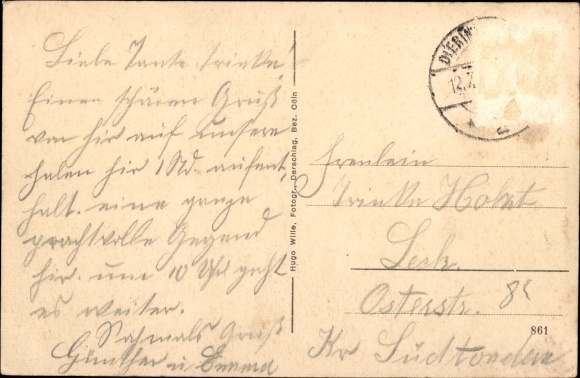 Liebe Tante Trinke!
Einen schönen Gruß
von hir auf unsere
halen hir 1 Std. aufent
halt. eine ganze
prachtvolle Gegend
hir. um 10 Uhr geht
es weiter.
Gruß
Günther u
Hugo Wille, Fotogr., Derschlag, Bez. Cöln
DIERIN
12.7
Freulein
Trinke
Leck.
Osterstr. 8
861
Kr Südtondern